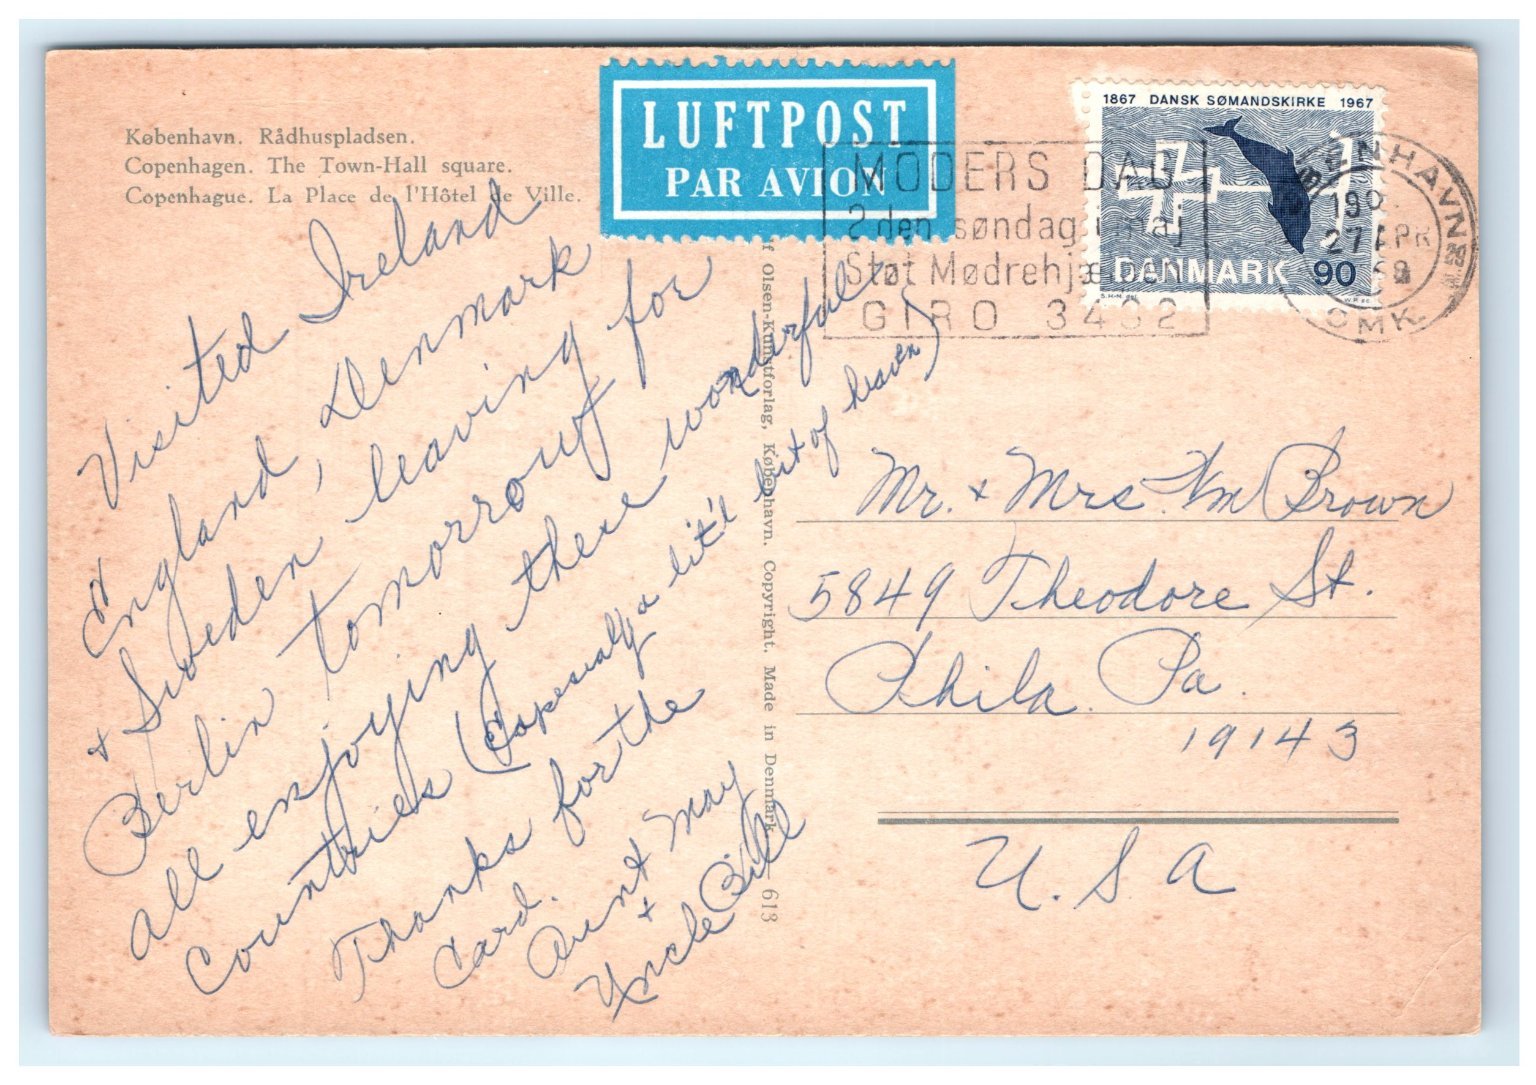 København. Rådhuspladsen.
Copenhagen. The Town-Hall square.
Copenhague. La Place de l'Hôtel de Ville.
LUFTPOST
PAR AVION
1867 DANSK SØMANDSKIRKE 1967
DANMARK 90
MODERS DAG
2den søndag i maj
Støt Mødrehjælpen
GIRO 3402
KØBENHAVN
27 APR
OMK.
Visited Ireland
England, Denmark
+ Sweden leaving for
Berlin tomorrow
all enjoying these wonderful
Countries (Espesialy a lit'l bit of heaven)
Thanks for the
Card.
Aunt May
+
Uncle Bill
Olsen-Kunstforlag, København. Copyright. Made in Denmark — 613
Mr. + Mrs. Wm Brown
5849 Theodore St.
Phila. Pa.
19143
U.S.A